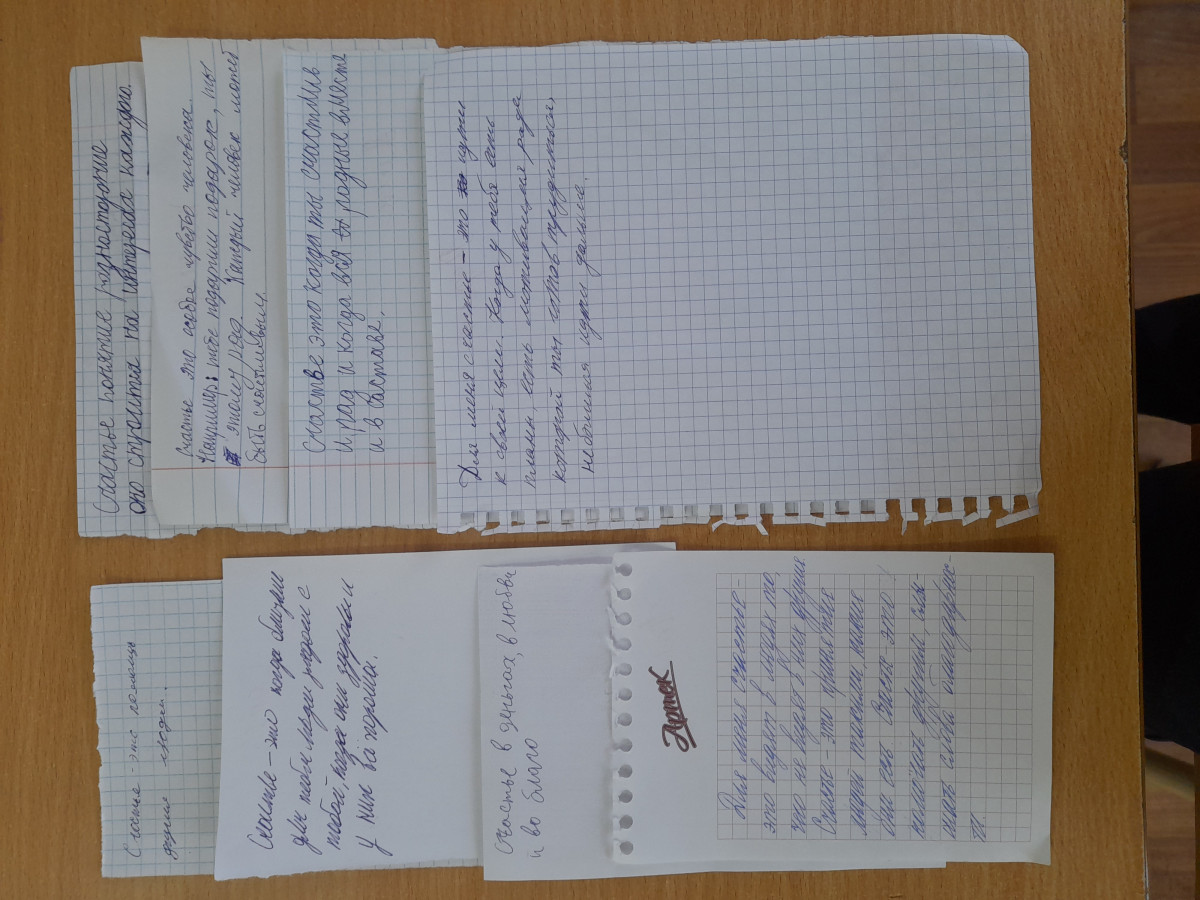 Счастье - это помощь
другим людям.
Счастье – это когда близкие
для тебя люди рядом с
тобой, когда они здоровы и
у них всё хорошо.
Счастье в деньгах, в любви
и во благо
Артек
Для меня счастье -
это видят в людях то,
что не видят в них другие
Счастье - это принятие
людей такими, какие
они есть. Счастье - это
помогать другим, слы-
шать слова благодарнос-
ти.
Счастье понятие разностороние
оно строится на интересах каждого.
Счастье это особое чувство человека.
Например: тебе подарили подарок, ты
этому рад. Каждый человек может
быть счастливым
счастье это когда ты счастлив
и рад и когда все родные вместе
и в составе.
Для меня счастье – это идти
к своей цели. Когда у тебя есть
планы, есть мотивация ради
которой ты готов трудиться,
идти дальше.